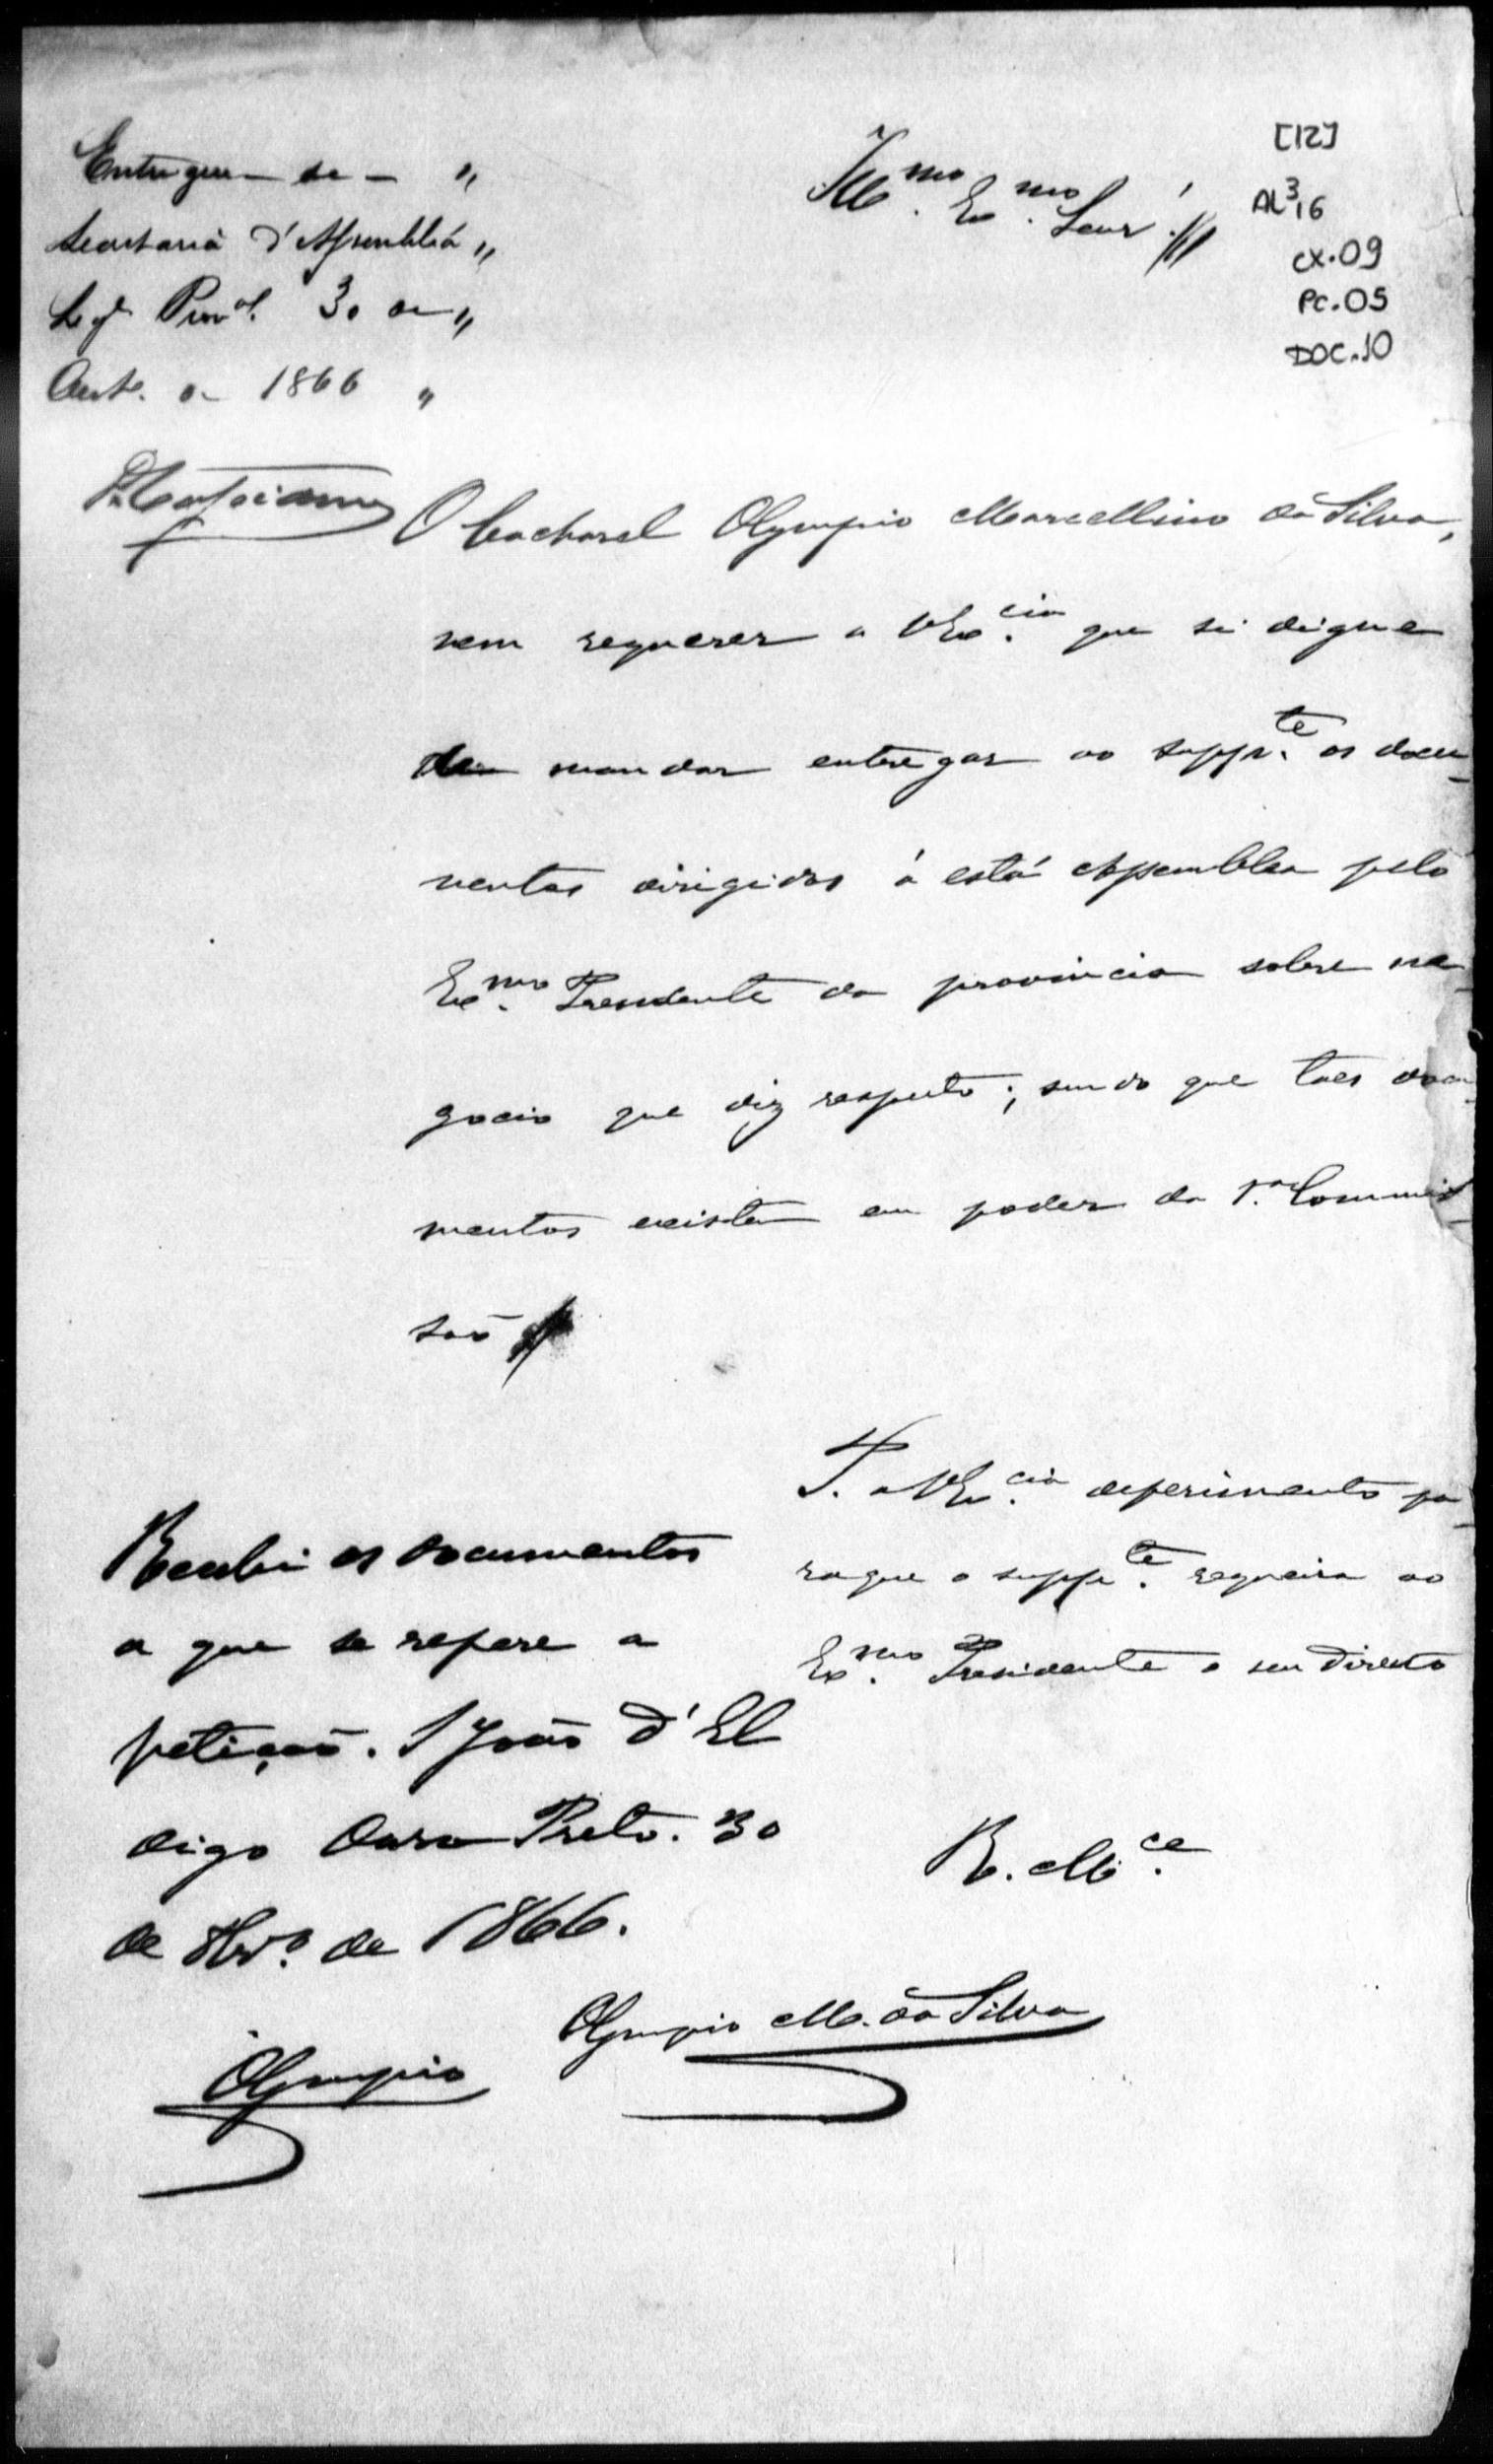 Entregue-se - "
Secretaria d'Assembléa "
Leg. Prov.al 30 de "
Out.o de 1866 "
Ill.mo Ex.mo Senr.
[12]
AL3,16
CX.09
PC.05
DOC.10
O bacharel Olympio Marcellino da Silva,
vem requerer a VEx.cia que si digne
de mandar entregar ao supp.te os docu-
mentos dirigidos á está Assemblea pelo
Ex.mo Presidente da provincia sobre ne-
gocio que diz respeito; sendo que taes docu-
mentos existem em poder da 1.a Commis-
saõ
P. a VEx.cia deferimento pa-
ra que o supp.te requeira ao
Ex.mo Presidente o seu direito
R. M.ce
Olympio M. da Silva
Recebi os documentos
a que se refere a
petiçaõ. S João d'El
digo Ouro Preto. 30
de 8br.o de 1866.
Olympio